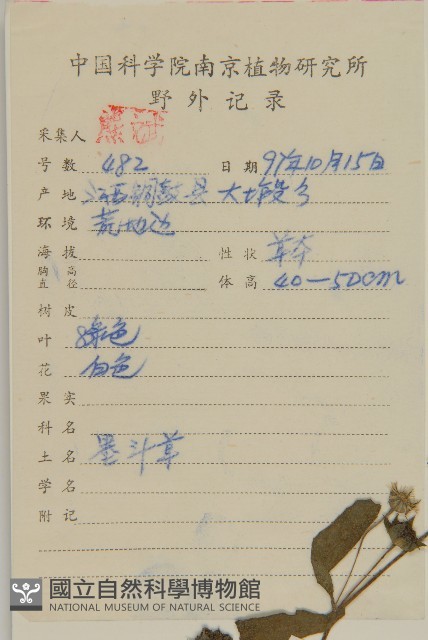 中国科学院南京植物研究所
野外记录
采集人
号数 482 日期 91年10月15日
产地 江西铜鼓县大塅乡
环境 荒地边
海拔 性状 草本
胸高直径 体高 40—50cm
树皮
叶 绿色
花 白色
果实
科名
土名 墨斗草
学名
附记
國立自然科學博物館
NATIONAL MUSEUM OF NATURAL SCIENCE